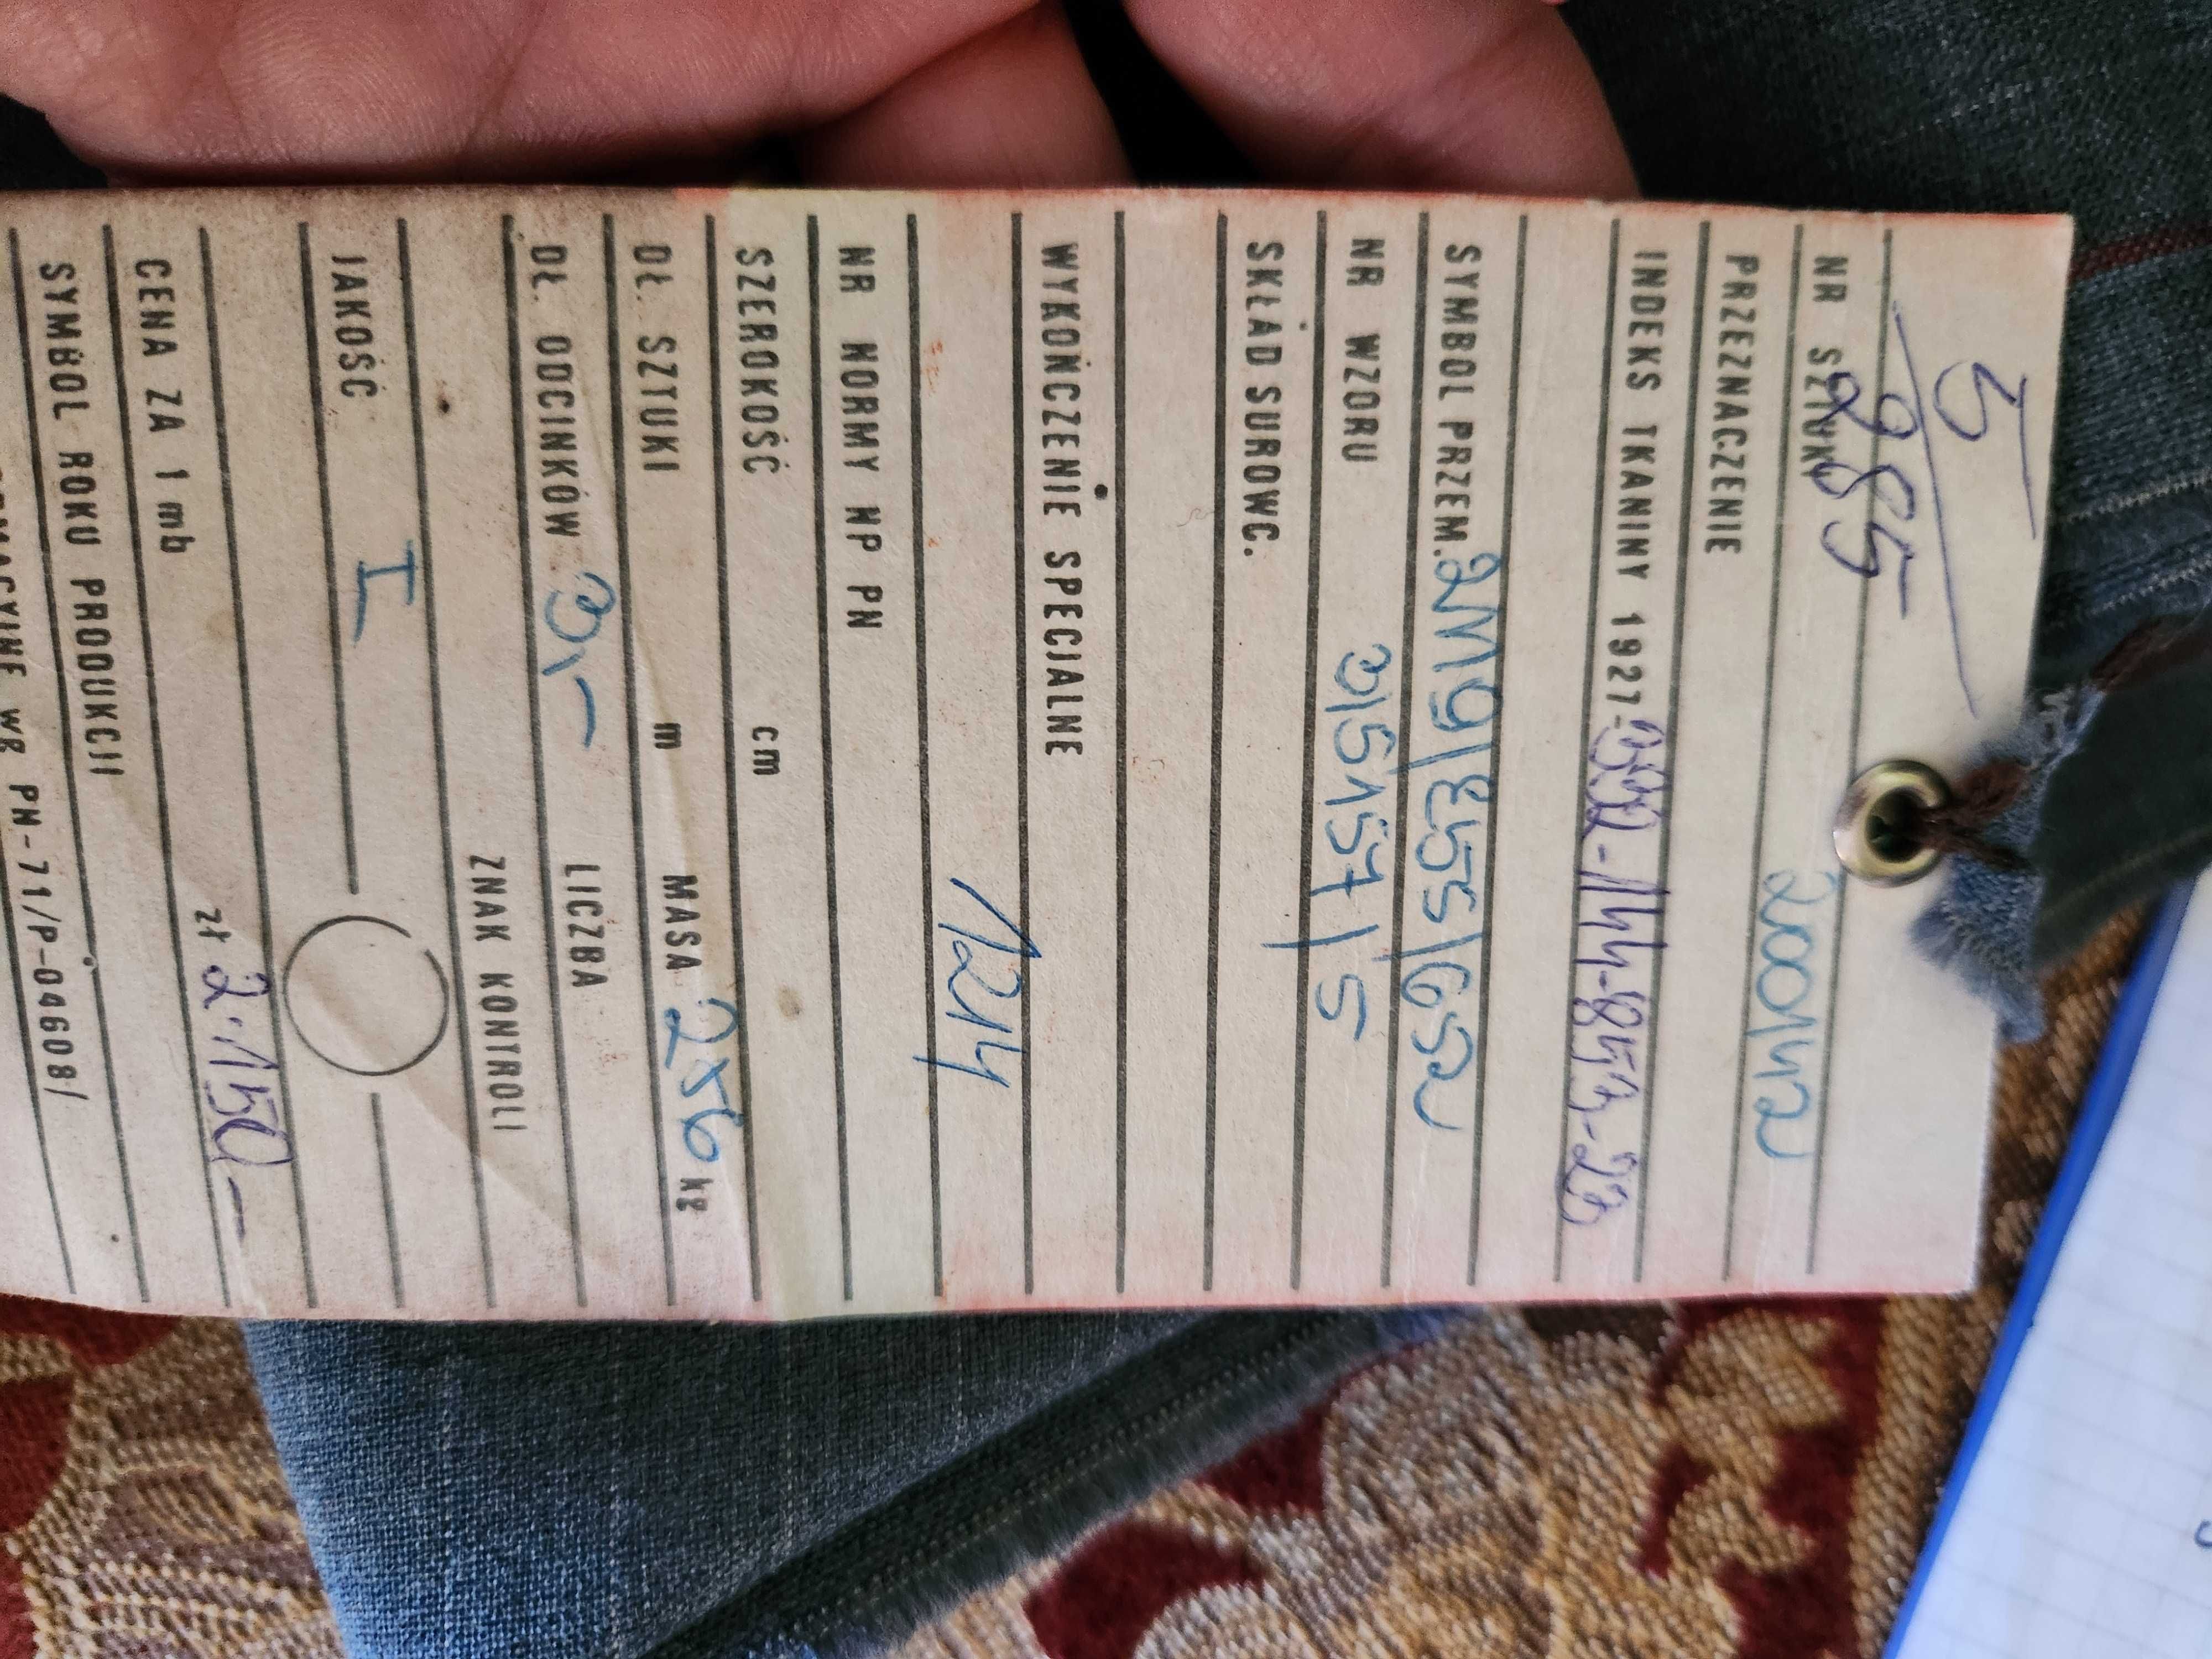 5
985
NR SZTUKI
200142
PRZEZNACZENIE
INDEKS TKANINY 1927-
SYMBOL PRZEM. 2M19/E55/GS2
NR WZORU 3/5157/5
SKŁAD SUROWC.
WYKOŃCZENIE SPECJALNE
1214
NR NORMY NP PN
SZEROKOŚĆ cm
DŁ. SZTUKI m MASA 256 kg
DŁ. ODCINKÓW 3,- LICZBA
ZNAK KONTROLI
JAKOŚĆ I
zł 2.150-
CENA ZA 1 mb
SYMBOL ROKU PRODUKCJI
WB PN-71/P-04608/